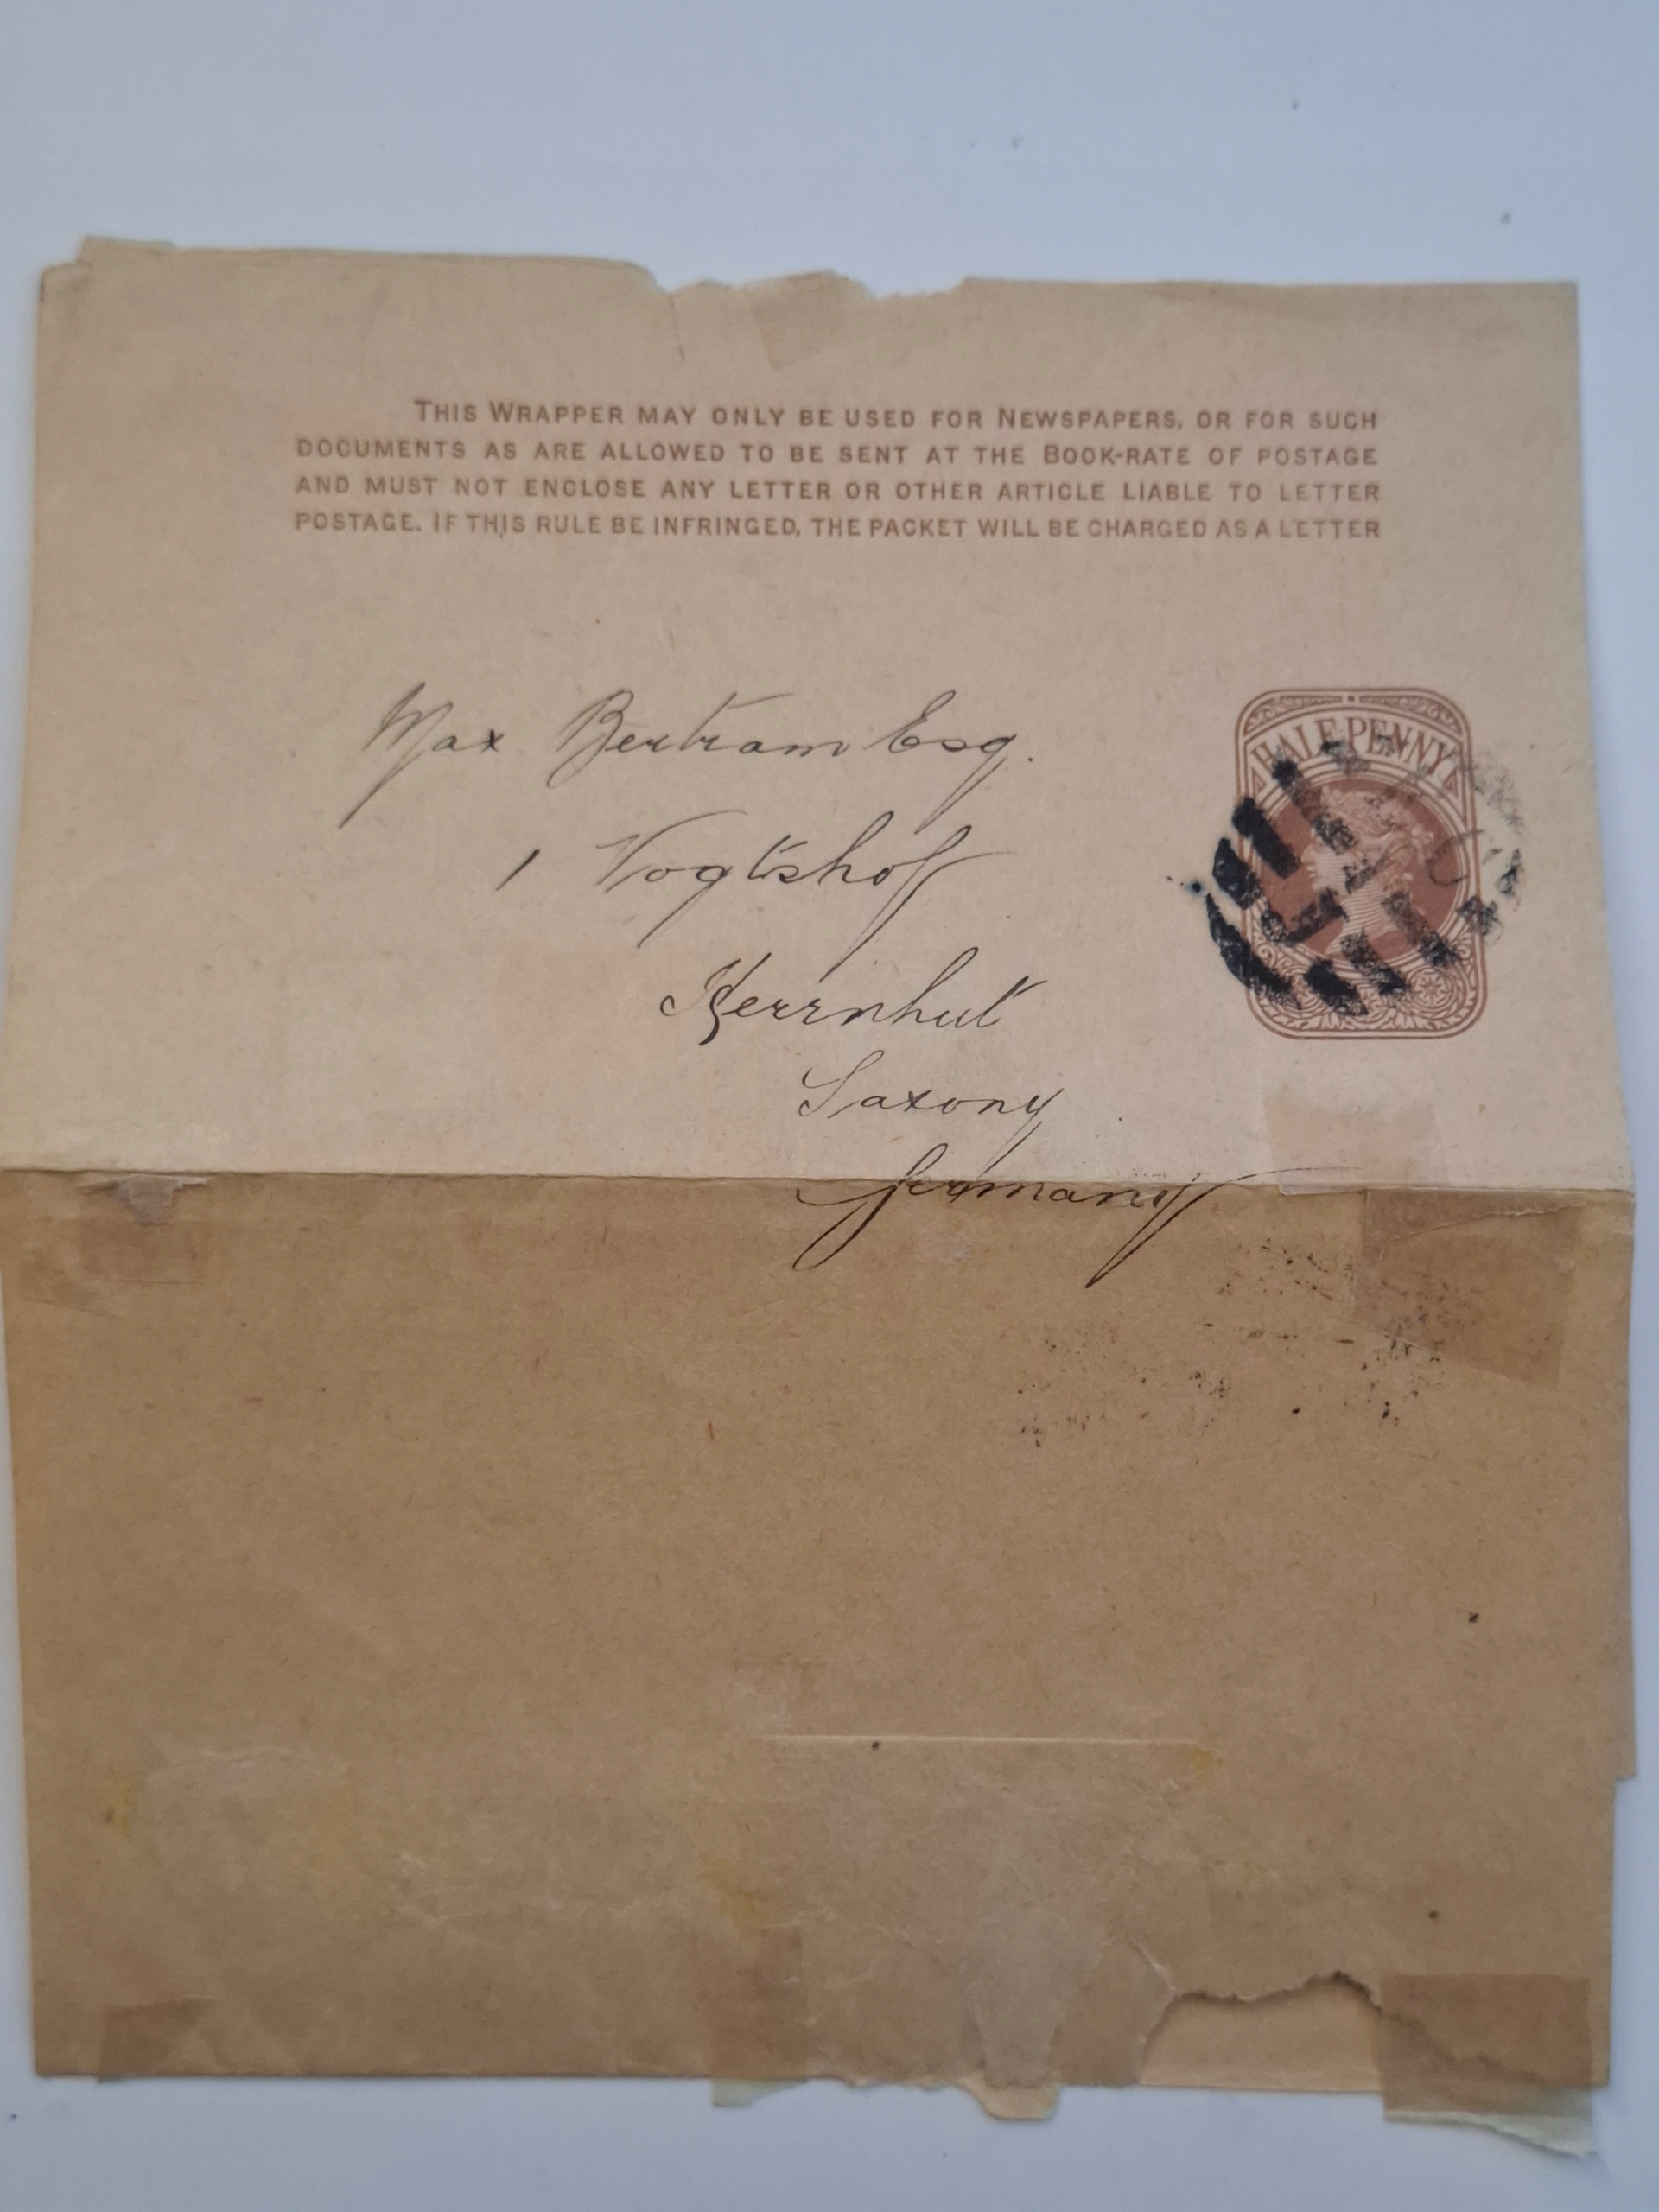 THIS WRAPPER MAY ONLY BE USED FOR NEWSPAPERS, OR FOR SUCH
DOCUMENTS AS ARE ALLOWED TO BE SENT AT THE BOOK-RATE OF POSTAGE
AND MUST NOT ENCLOSE ANY LETTER OR OTHER ARTICLE LIABLE TO LETTER
POSTAGE. IF THIS RULE BE INFRINGED, THE PACKET WILL BE CHARGED AS A LETTER
HALFPENNY
Max Bertram Esq.
1 Vogtshof
Herrnhut
Saxony
Germany